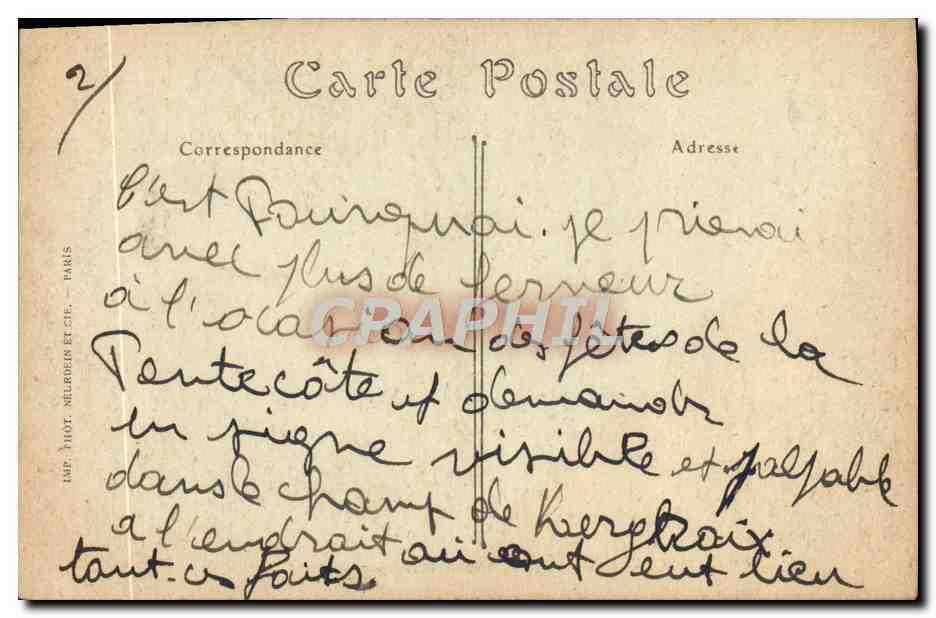 2/
Carte Postale
Correspondance
Adresse
c'est Pourquoi je prierai
avec plus de ferveur
à l'ocasion des fêtes de la
Pentecôte et demande
un signe visible et palpable
dans le champ de
a l'endroit où ont eut lieu
tant ces faits
IMP. PHOT. NEURDEIN ET CIE. — PARIS
CRAPHIL